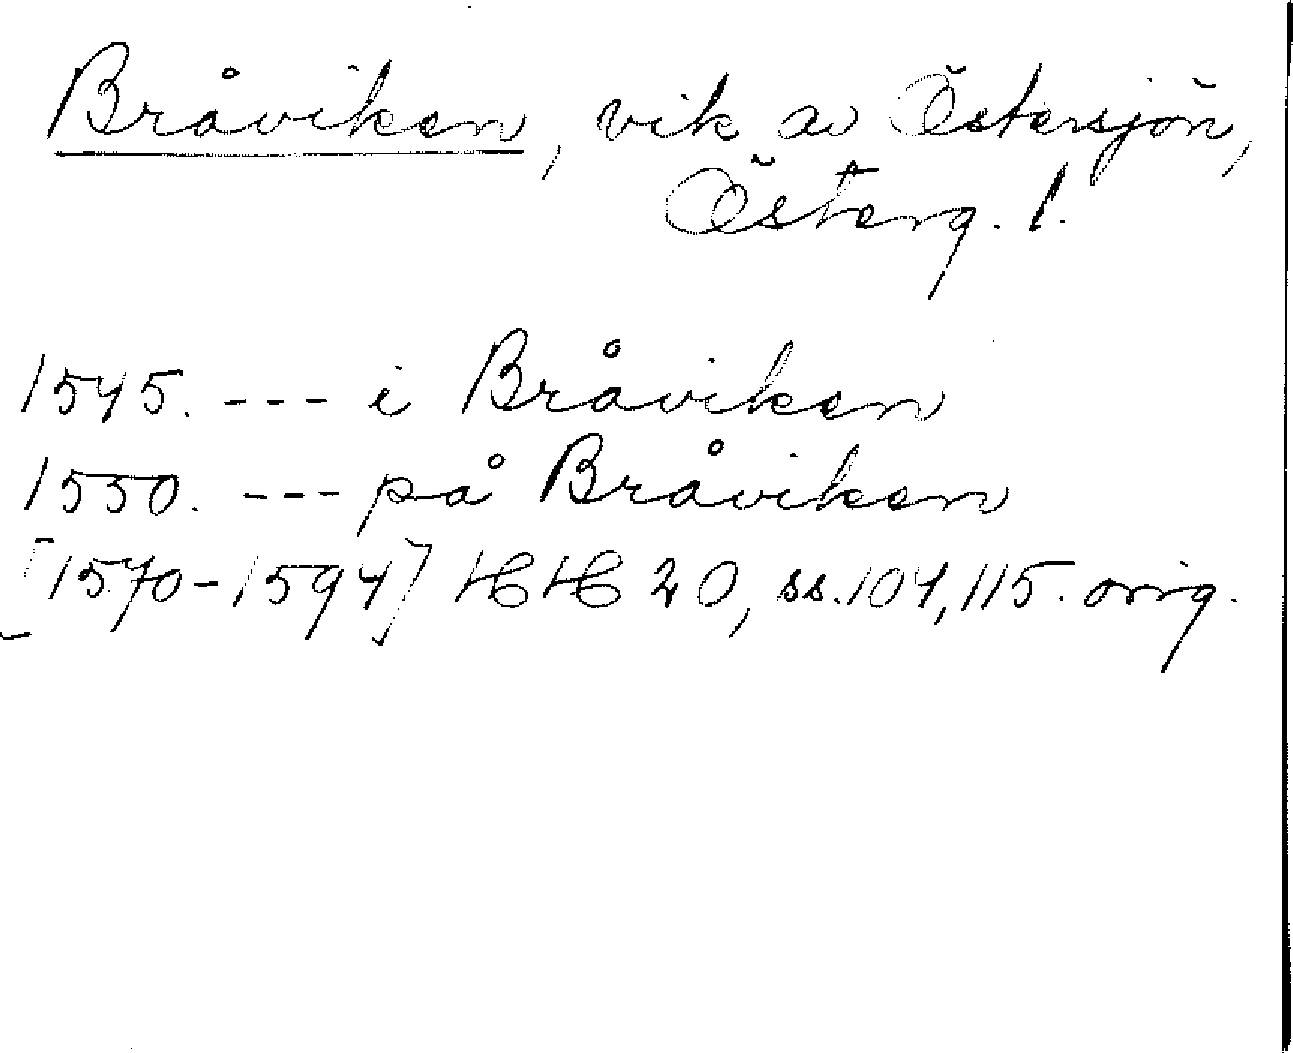 Bråviken, vik av Östersjön,
Österg. l.
1545. --- i Bråviken
1550. --- på Bråviken
[1570-1594] HH 20, ss. 104, 115. orig.